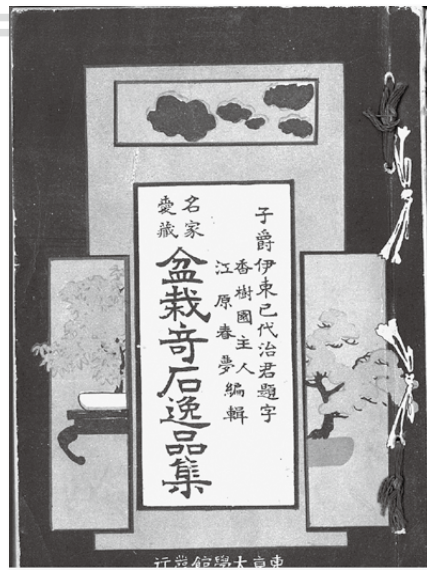 子爵伊東巳代治君題字
香樹園主人
江原春夢編輯
名家
愛藏
盆栽奇石逸品集
東京大學館發行